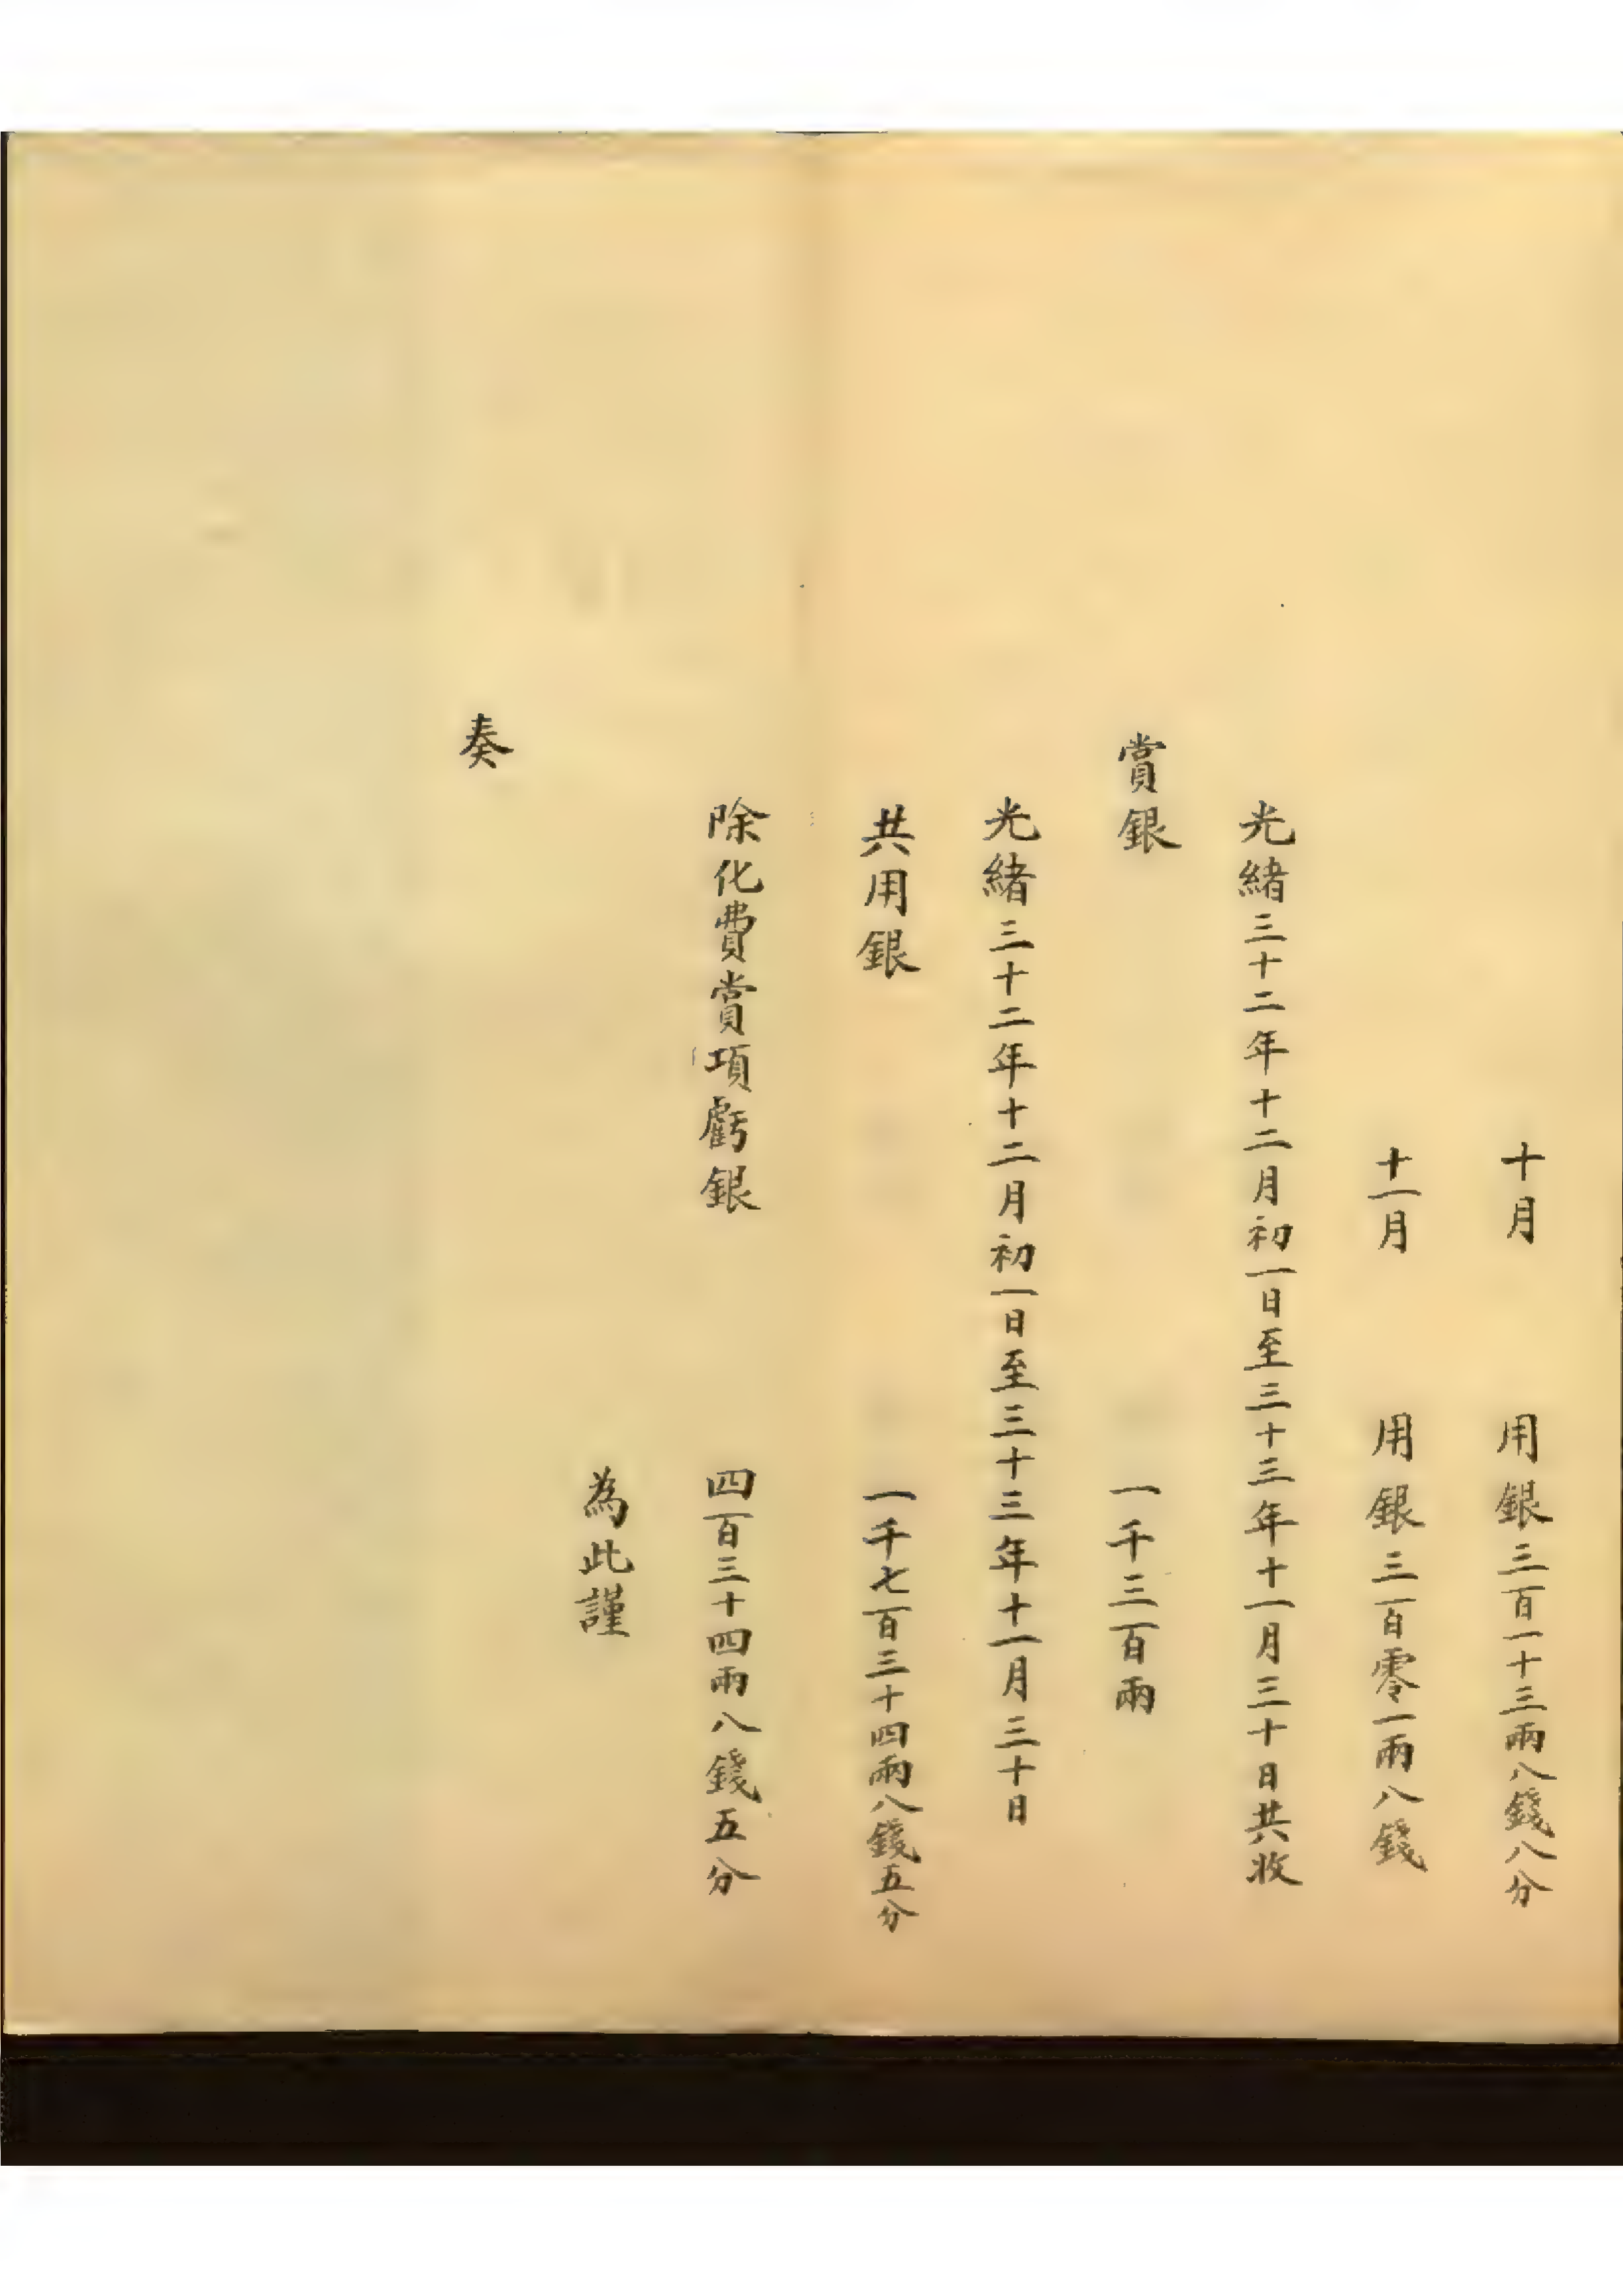 十月 用銀三百一十三兩八錢八分
十一月 用銀三百零一兩八錢
光緒三十二年十二月初一日至三十三年十一月三十日共收
賞銀 一千三百兩
光緒三十二年十二月初一日至三十三年十一月三十日
共用銀 一千七百三十四兩八錢五分
除化費賞項虧銀 四百三十四兩八錢五分
為此謹
奏